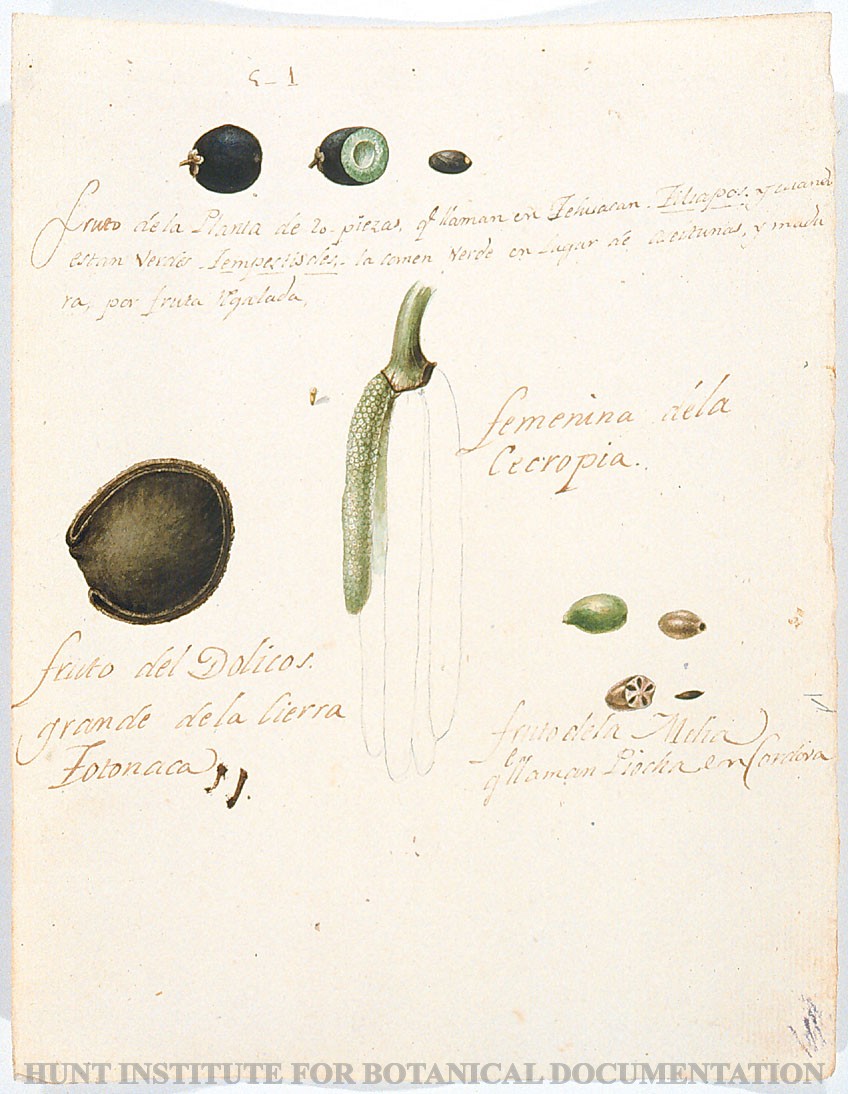 fruto dela Planta de 20. piezas, qͤ llaman en Tehuacan. Tilsapos. y cuand
estan Verdes Tempesquisdes, la comen Verde en lugar de aceitunas, y madu
ra, por fruta Rͤgalada,
femenina déla
Cecropia.
fruto del Dolicos.
grande dela tierra
Totonaca
fruto dela Melia
qͤ llaman Piocha en Cordova
HUNT INSTITUTE FOR BOTANICAL DOCUMENTATION